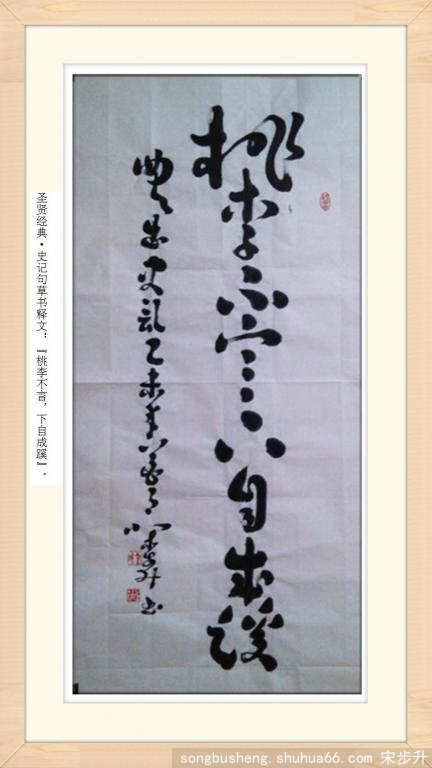 桃李不言下自成蹊
典出史记乙未年八月
步升书
圣贤经典·史记句草书释文：『桃李不言，下自成蹊』。
songbusheng.shuhua66.com 宋步升